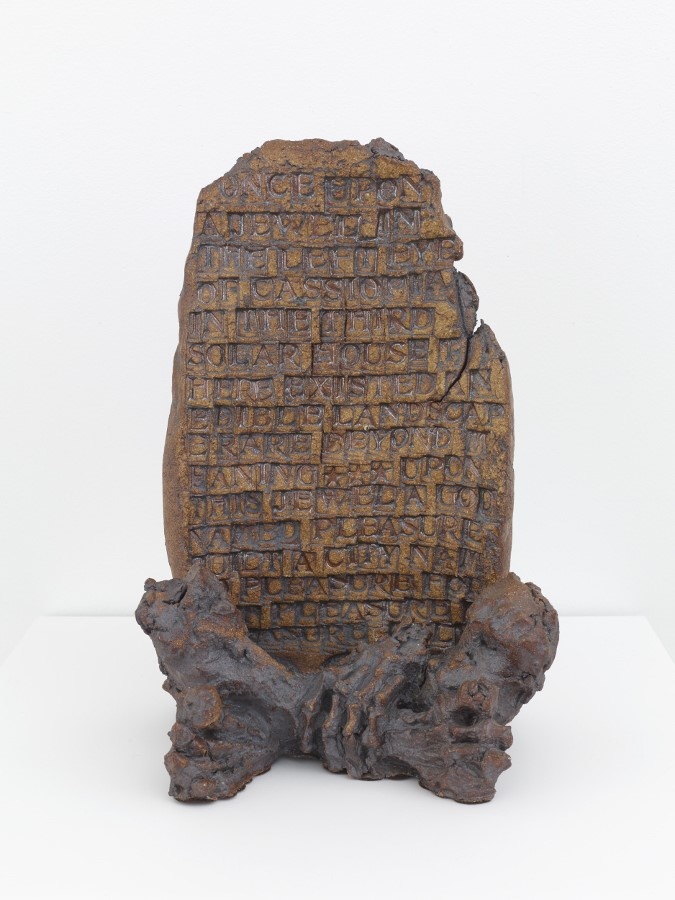 ONCE UPON
A JEWEL IN
THE LEFT EYE
OF CASSIO
IN THE THIRD
SOLAR HOUSE
HER EXISTED AN
EDIBLE LANDSCAP
ERARE BEYOND
EANING *** UPON
THIS JEWEL A GOD
NAMED PLEASURE
BUILT A CITY NAM
PLEASURE
PLEASURE
WERE